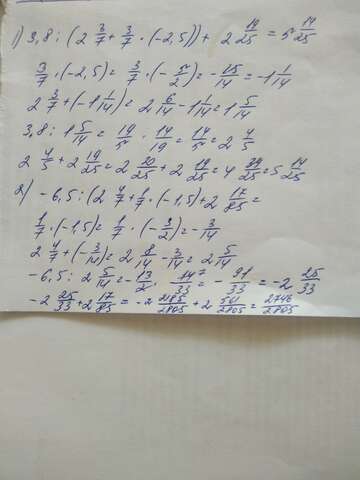 1) 3,8 : (2 3/7 + 3/7 · (-2,5)) + 2 19/25 = 5 14/25
3/7 · (-2,5) = 3/7 · (- 5/2) = - 15/14 = -1 1/14
2 3/7 + (-1 1/14) = 2 6/14 - 1 1/14 = 1 5/14
3,8 : 1 5/14 = 19/5 · 14/19 = 14/5 = 2 4/5
2 4/5 + 2 19/25 = 2 20/25 + 2 19/25 = 4 39/25 = 5 14/25
2) -6,5 : (2 4/7 + 1/7 · (-1,5) + 2 17/85 =
1/7 · (-1,5) = 1/7 · (- 3/2) = - 3/14
2 4/7 + (- 3/14) = 2 8/14 - 3/14 = 2 5/14
-6,5 : 2 5/14 = - 13/2 · 14 7/33 = - 91/33 = -2 25/33
-2 25/33 + 2 17/85 = -2 2185/2805 + 2 561/2805 = 2746/2805